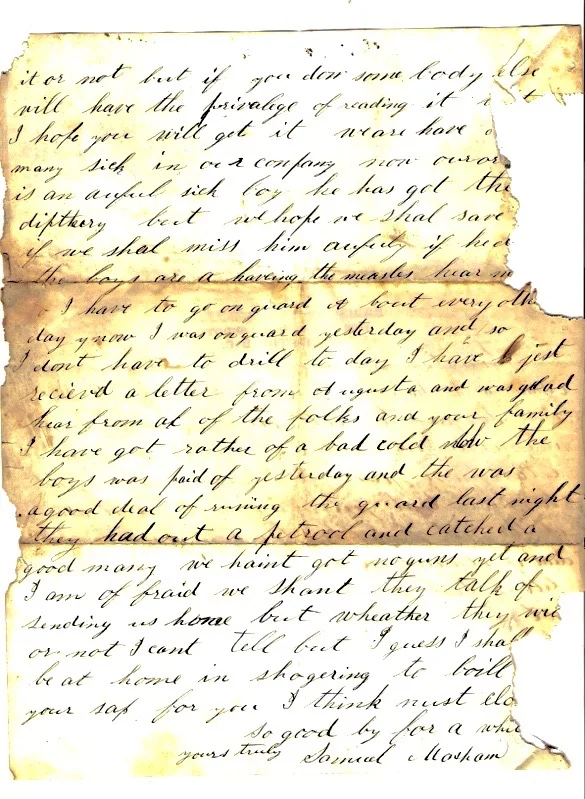 it or not but if you don some body else
will have the privalige of reading it
I hope you will get it weare have
many sick in our company now our
is an auful sick boy he has got the
dipthery but we hope we shal save
if we shal miss him aufuly if he
the boys are a haveing the measles hear
I have to go on guard a bout every oth
day now I was on guard yesterday and so
I dont have to drill to day I have jest
recievd a letter from augusta and was glad
hear from al of the folks and your family
I have got rather of a bad cold now the
boys was paid of yesterday and the was
a good deal of runing the guard last night
they had out a petrool and catched a
good many we haint got no guns yet and
I am of fraid we shant they talk of
sending us home but wheather they wil
or not I cant tell but I guess I shall
be at home in shogering to boill
your sap for you I think must clo
so good by for a whil
yours truly Samuel Masham